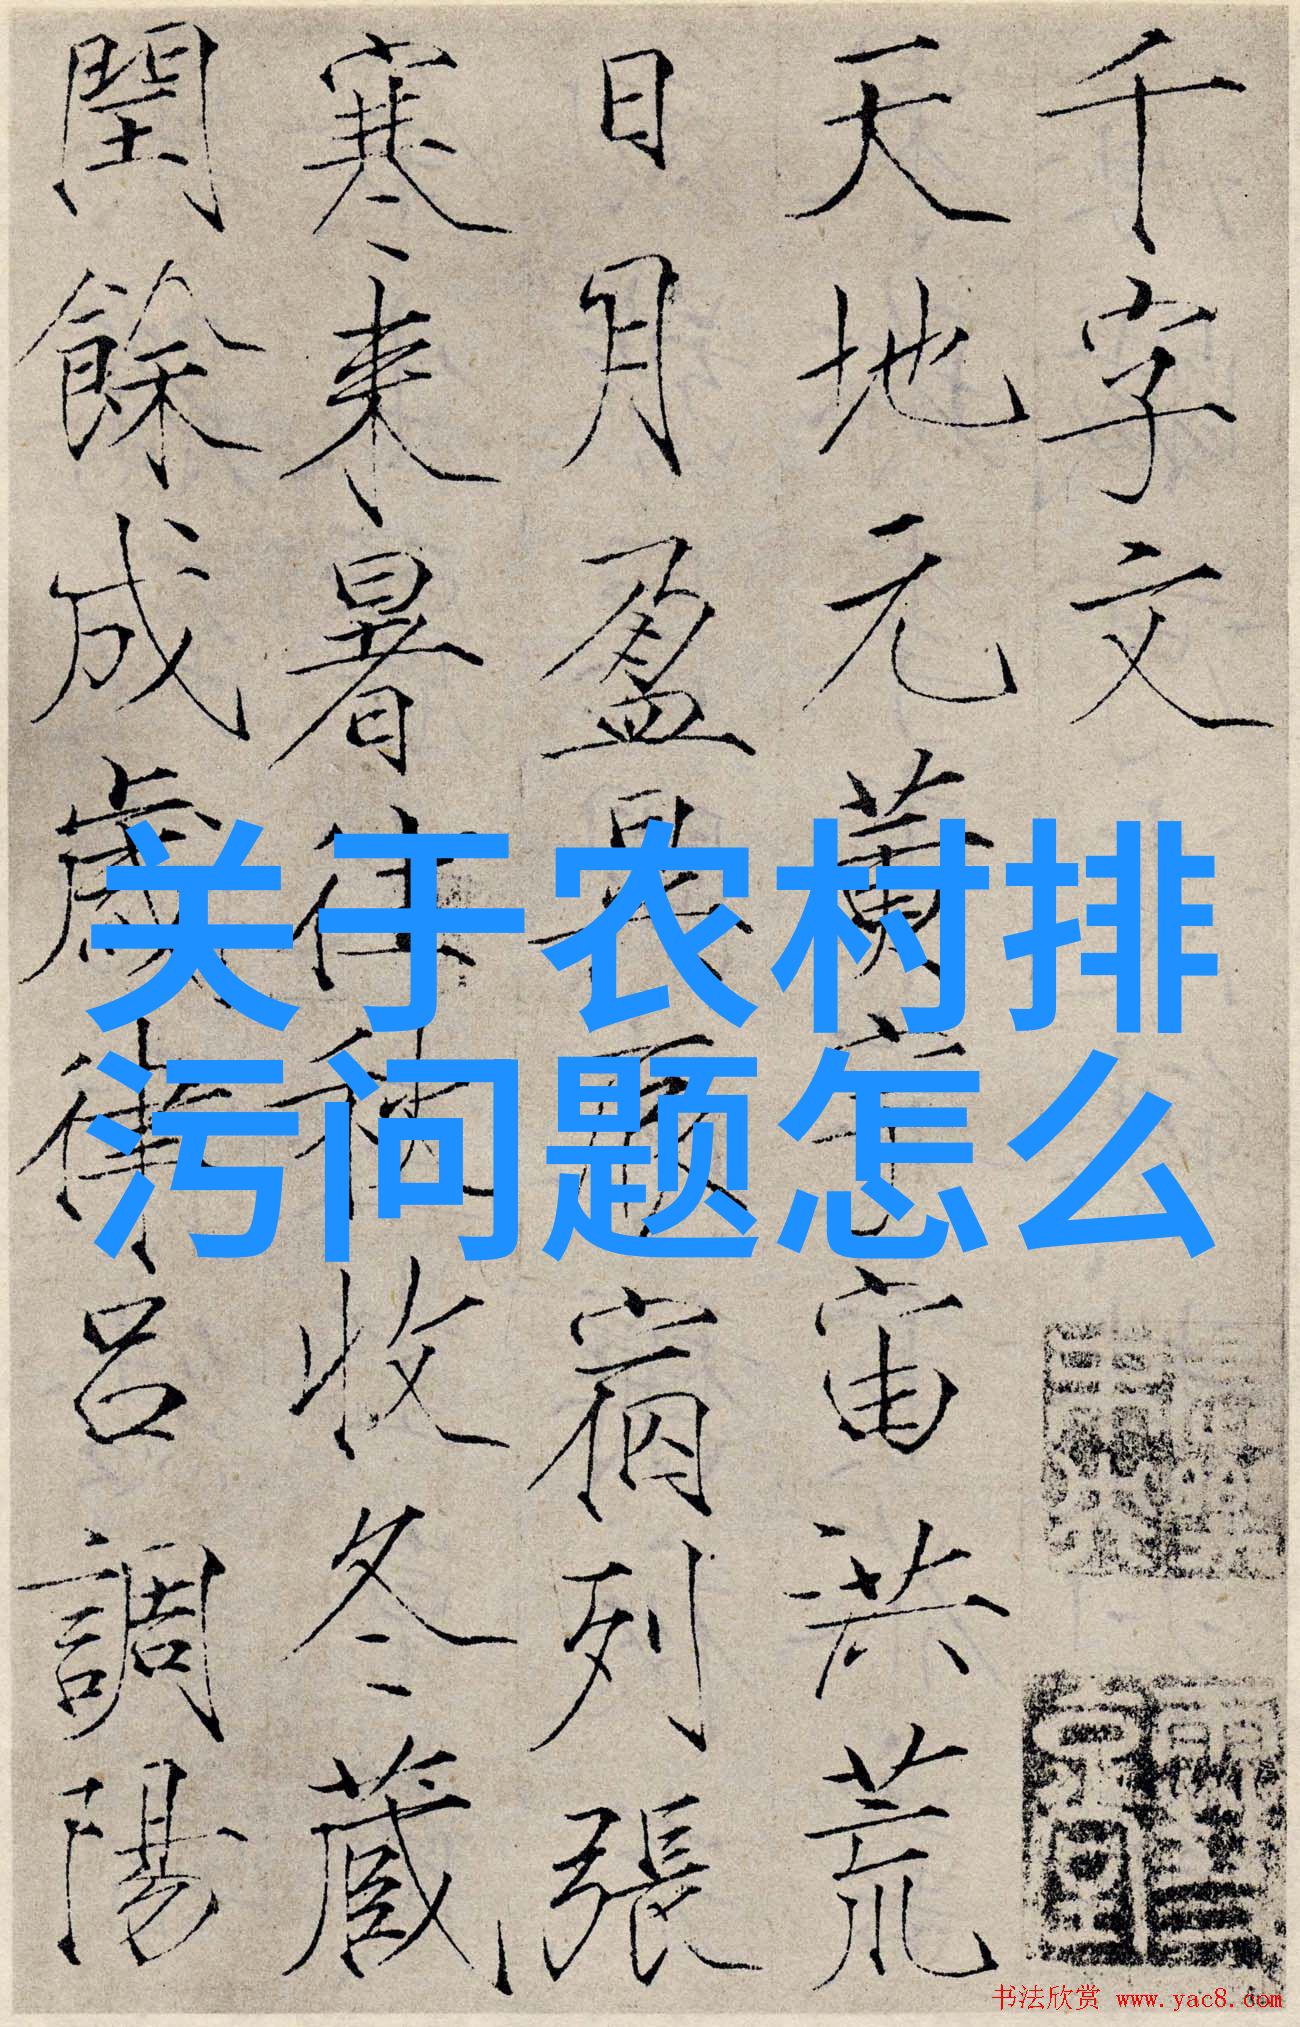 千字文
天地元黄宇宙洪荒
日月盈昃辰宿列張
寒来暑往秋收冬蔵
閏餘成歲律吕調陽
关于农村排
污问题怎么
书法欣赏 www.yac8.com